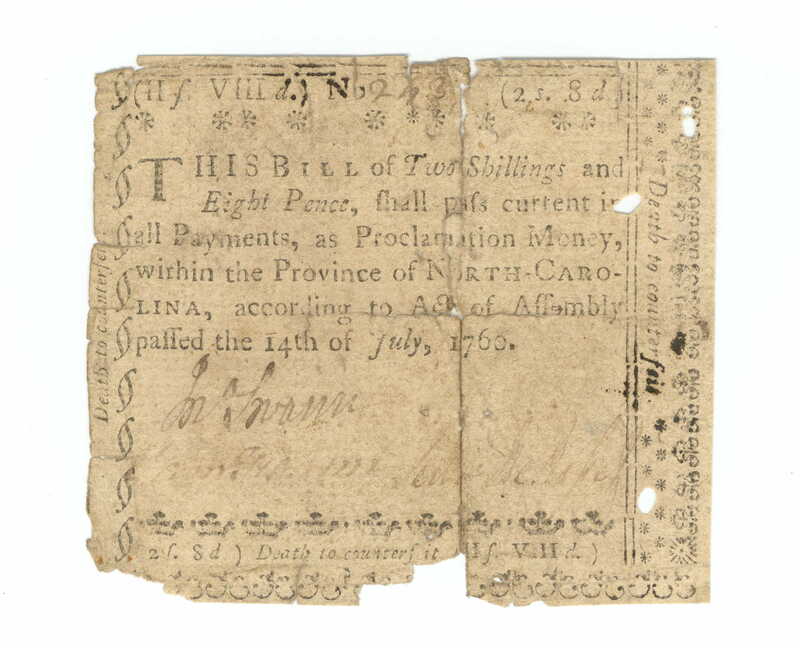 (II ſ. VIII d.) No 243 (2 s. 8 d
THIS BILL of Two Shillings and
Eight Pence, ſhall paſs current in
all Payments, as Proclamation Money,
within the Province of NORTH-CARO-
LINA, according to Act of Aſſembly
paſſed the 14th of July, 1760.
Jnº Swann
2 ſ. 8 d ) Death to counterf it II ſ. VIII d. )
Death to counterfei
Death to counterfeit.